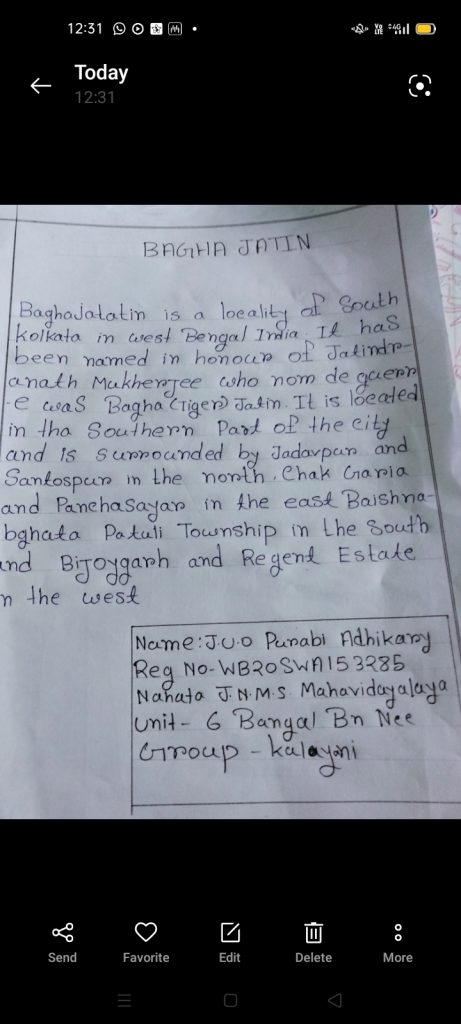 12:31
Today
12:31
BAGHA JATIN
Baghajatatin is a loeality of South
kolkata in west Bengal India. It has
been named in honour of Jatindr-
anath Mukherjee who nom de guerr
-e was Bagha (Tiger) Jatin. It is loeated
in tha Southern Part of the city
and is surrounded by Jadavpur and
Santospur in the north. Chak Garia
and Panchasayar in the east Baishna-
bghata Patuli Township in the South
and Bijoygarh and Regent Estate
n the west
Name: J.U.O Purabi Adhikary
Reg No-WB20SWA153285
Nahata J.N.M.S. Mahavidayalaya
Unit- 6 Bangal Bn Nee
Group - kalayani
Send
Favorite
Edit
Delete
More